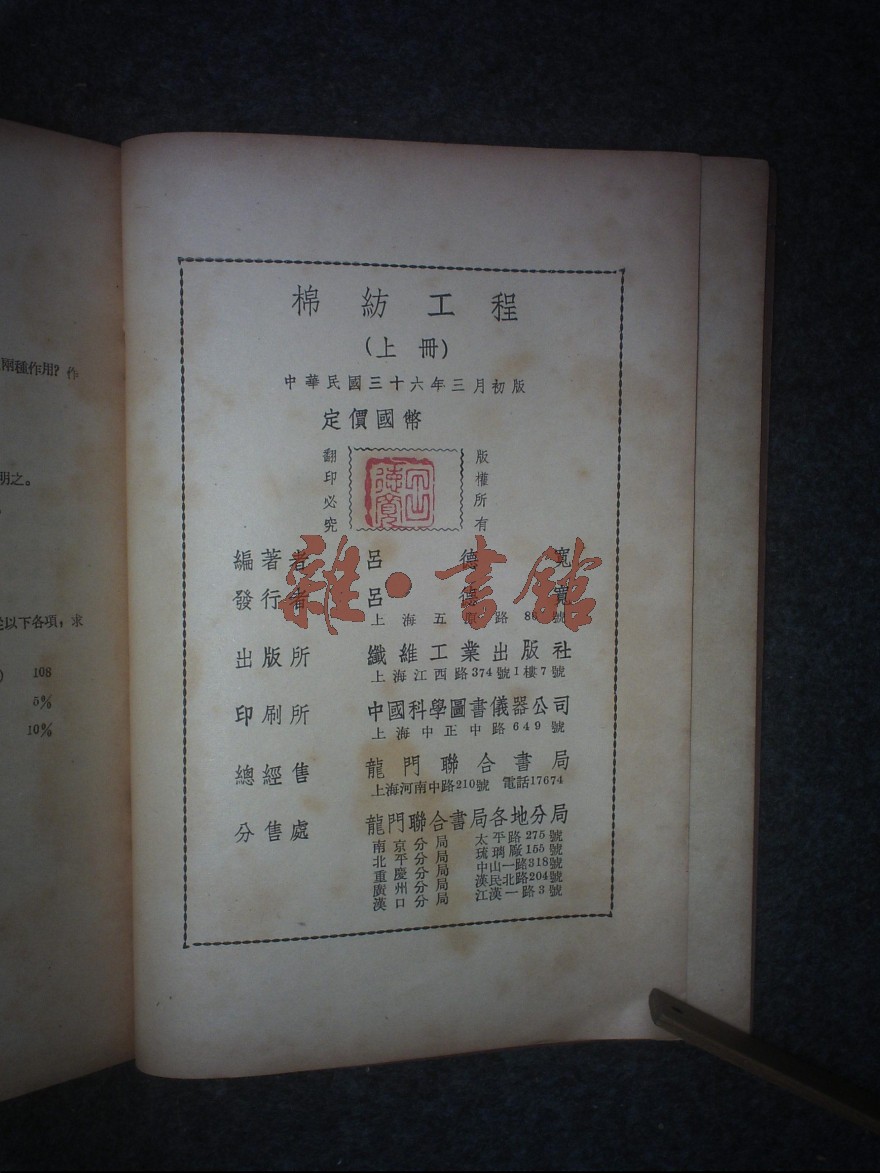 兩種作用？作
明之。
以下各項，求
) 108
5%
10%
棉紡工程
(上冊)
中華民國三十六年三月初版
定價國幣
版權所有
翻印必究
呂德寬
編著者 呂德寬
發行者 呂德寬
上海五原路8號
出版所 纖維工業出版社
上海江西路374號1樓7號
印刷所 中國科學圖書儀器公司
上海中正中路649號
總經售 龍門聯合書局
上海河南中路210號 電話17674
分售處 龍門聯合書局各地分局
南京分局 太平路275號
北平分局 琉璃廠155號
重慶分局 中山一路318號
廣州分局 漢民北路204號
漢口分局 江漢一路3號
雜·書館